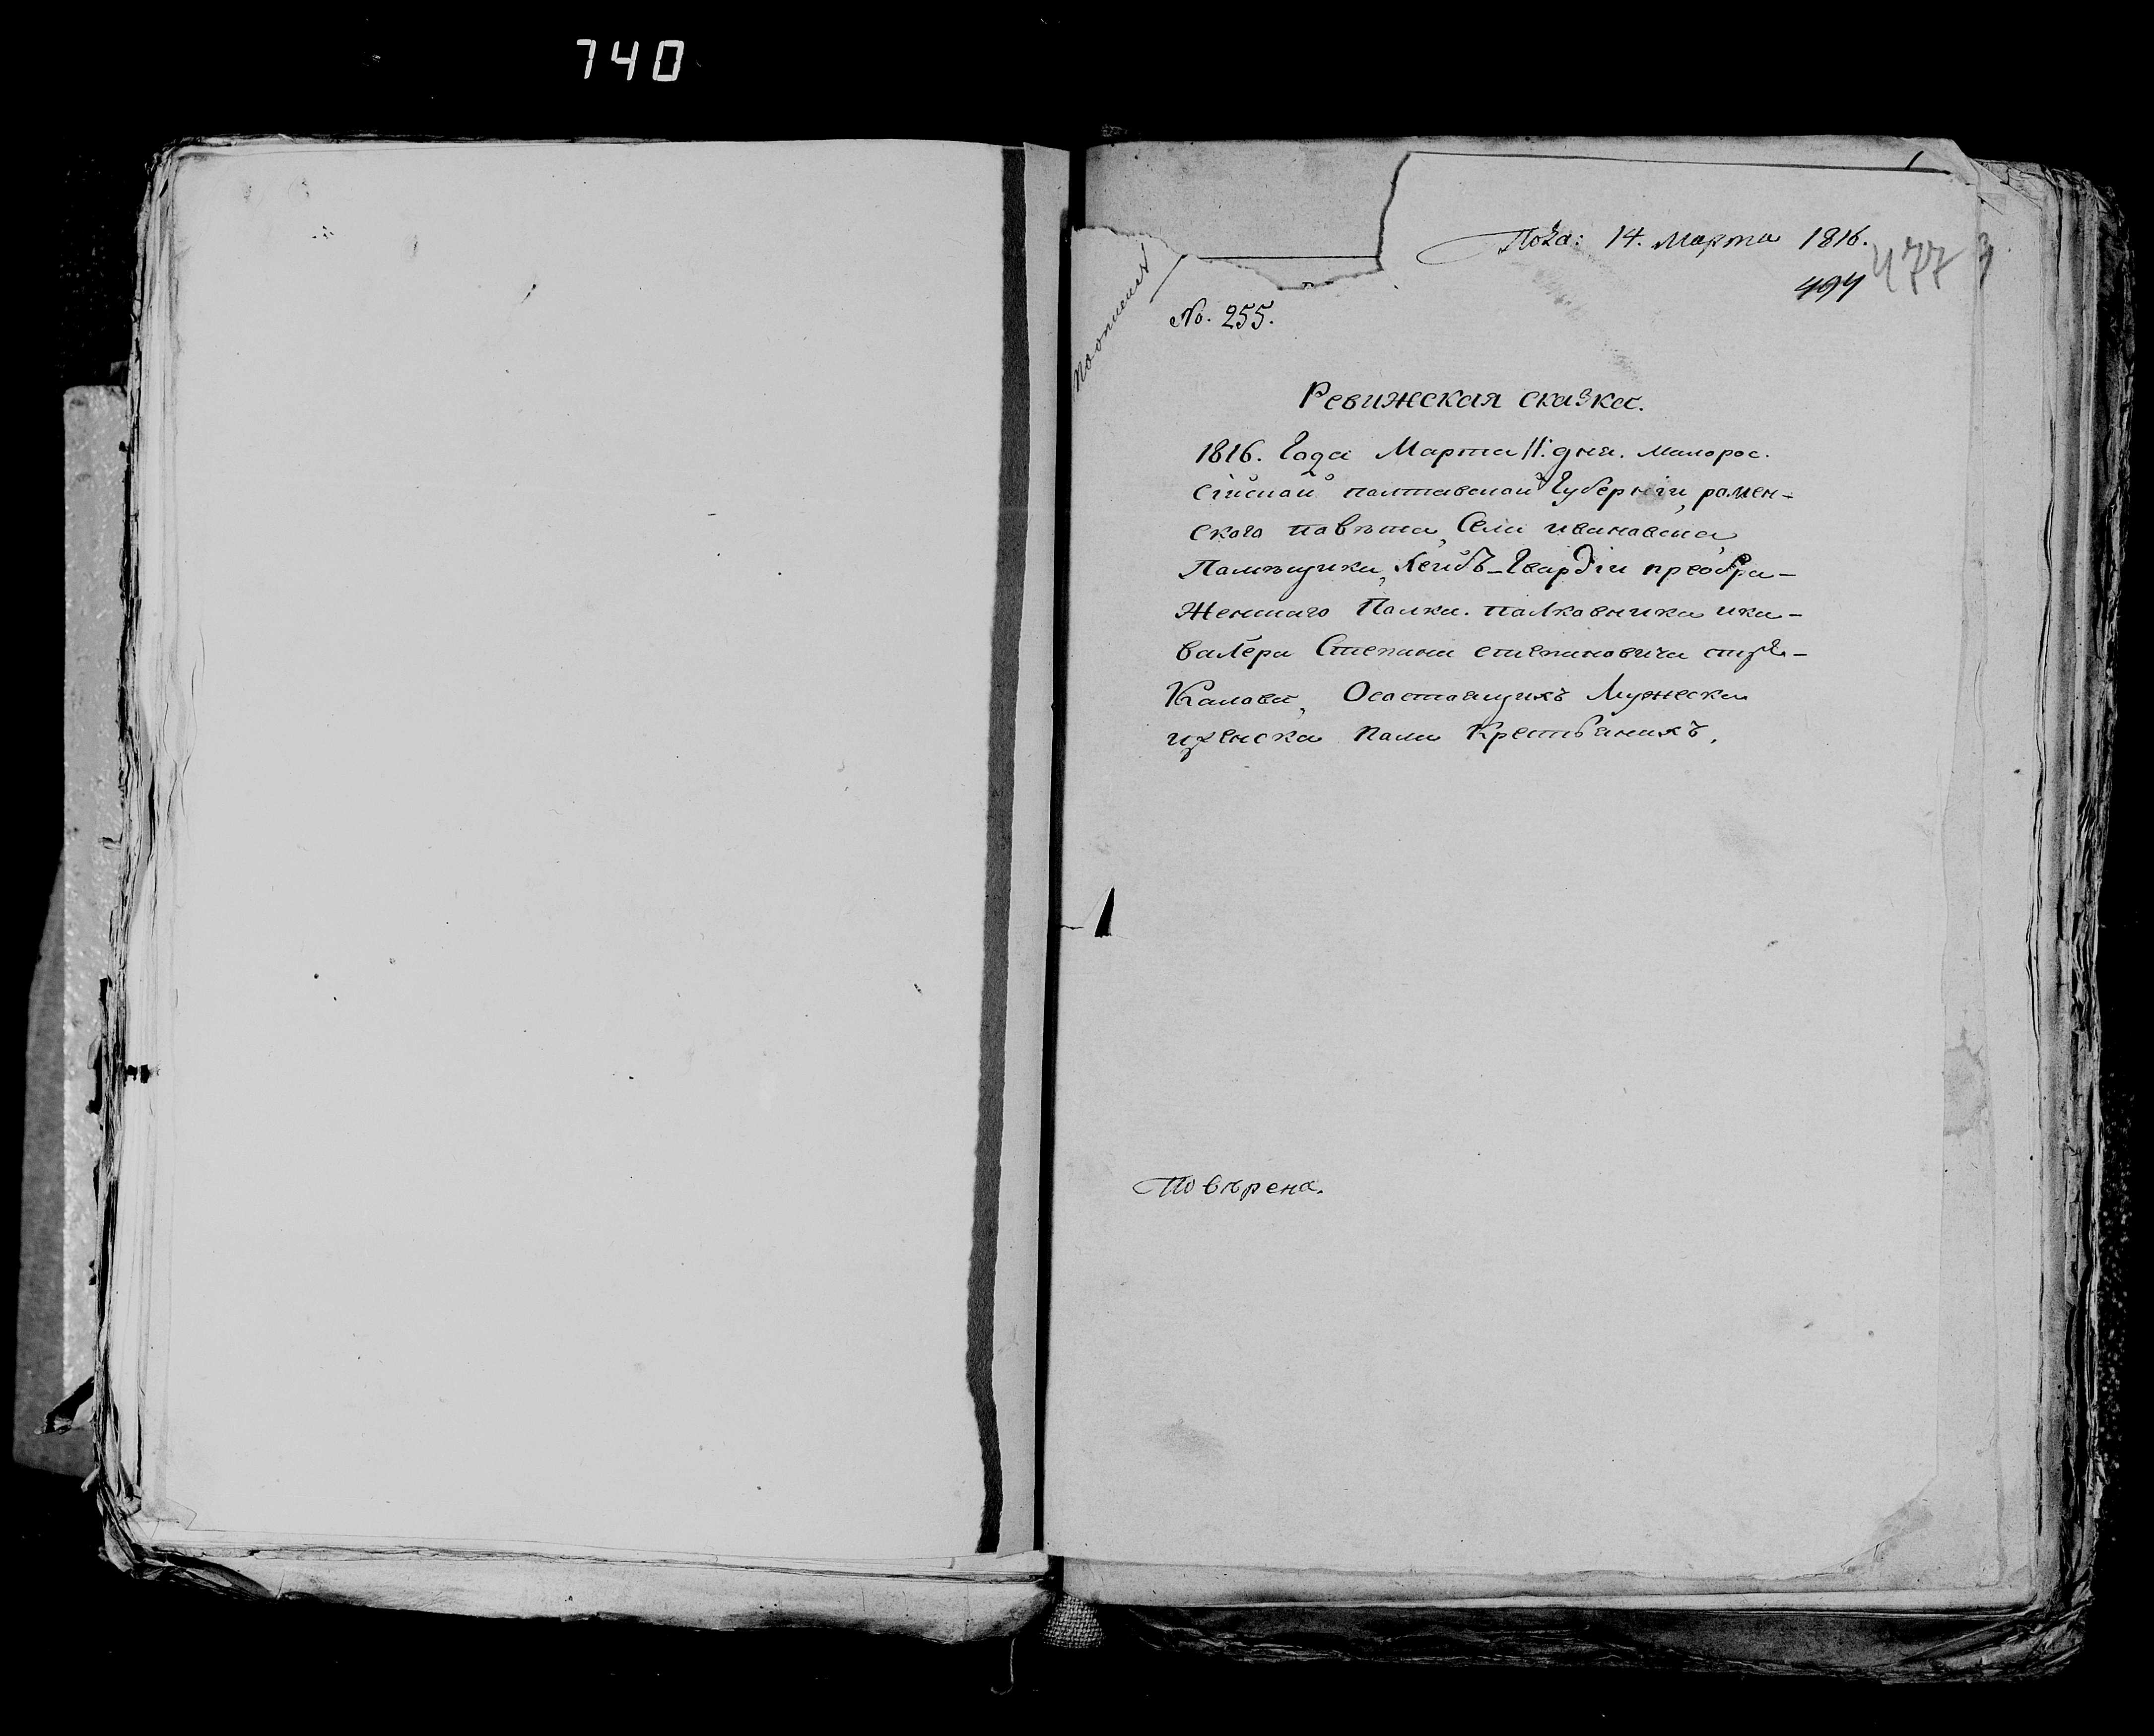 740
Пода: 14. Марта 1816.
494 477
No. 255.
Ревижская сказка.
1816. Года Марта 11. дня. малорос.
сійской полтавской Губерніи, ромен-
ского повѣта, Села ивановска,
Памѣщика, Лейбъ-Гвардіи преобра-
Женшаго Полка. палковника ика-
валера Степана степановича стре-
Калова, Осостаящихъ Мужеска
иженска пола Крестьянихъ.
Повѣрена.